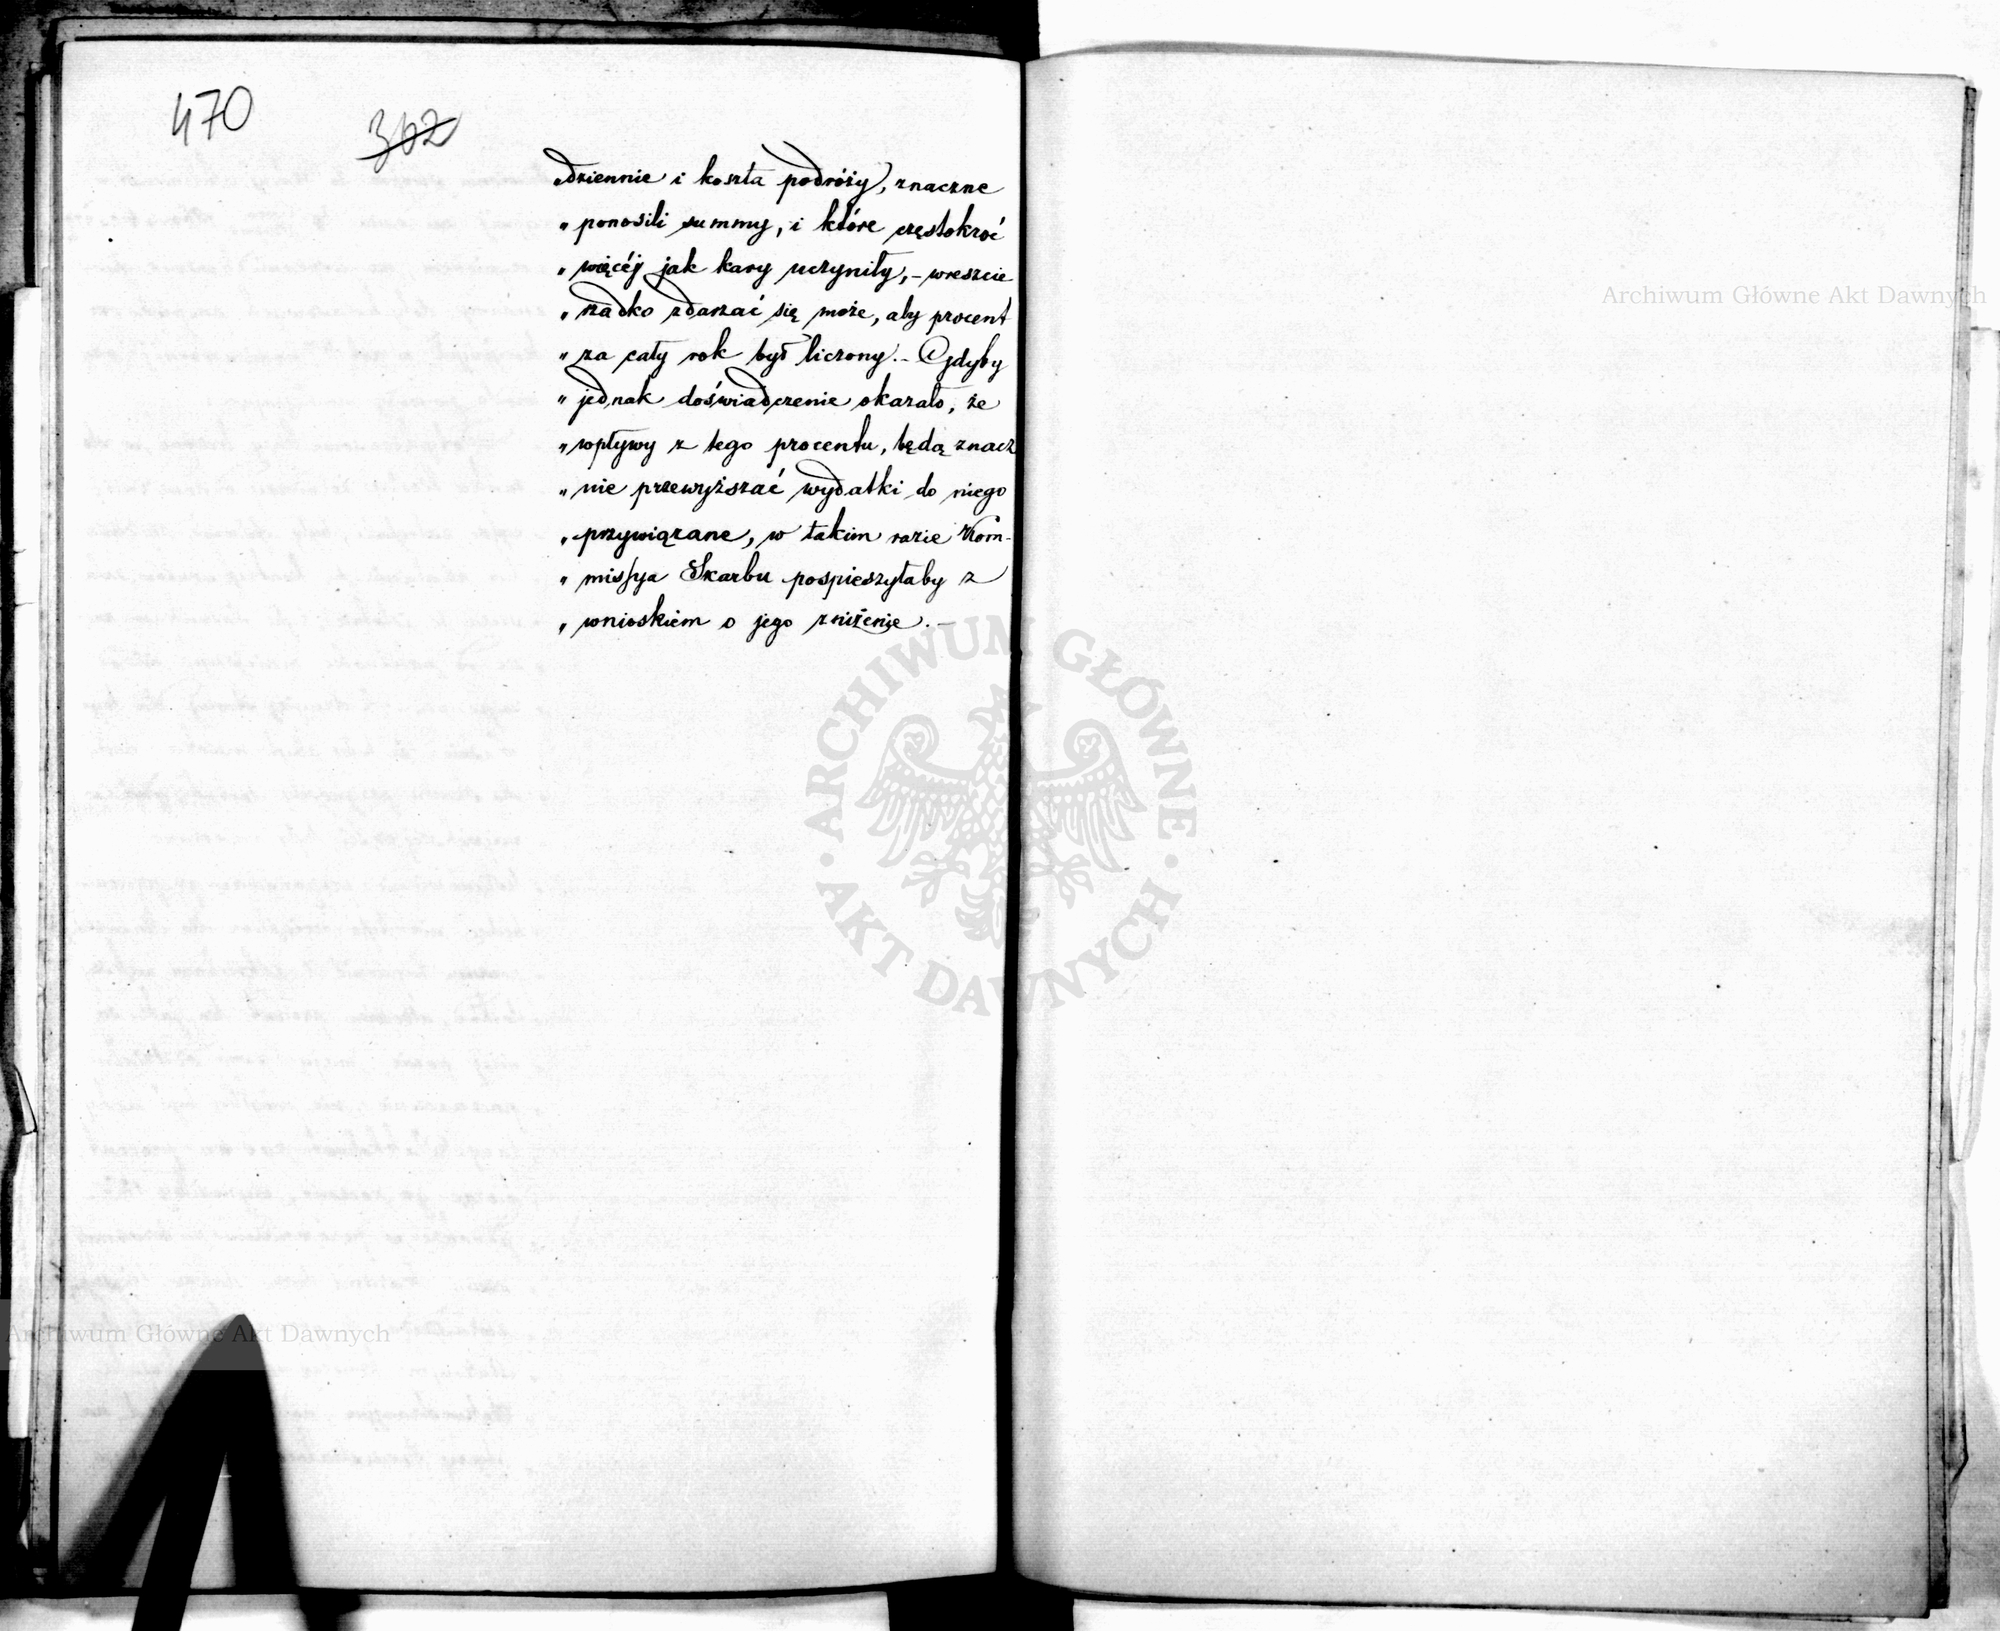 470
362
„dziennie i koszta podróży, znaczne
„ ponosili summy, i które częstokroć
„ więcéj jak kary uczyniły, – wreszcie
„ rzadko zdarzać się może, aby procent
„ za cały rok był liczony. – Gdyby
„ jednak doświadczenie okazało, że
„ wpływy z tego procentu, będą znacz
„ nie przewyższać wydatki do niego
„ przywiązane, w takim razie Kom-
„ missya Skarbu pospieszyłaby z
„ wnioskiem o jego zniżenie. –
Archiwum Główne Akt Dawnych
ARCHIWUM GŁÓWNE
· AKT DAWNYCH ·
Archiwum Główne Akt Dawnych